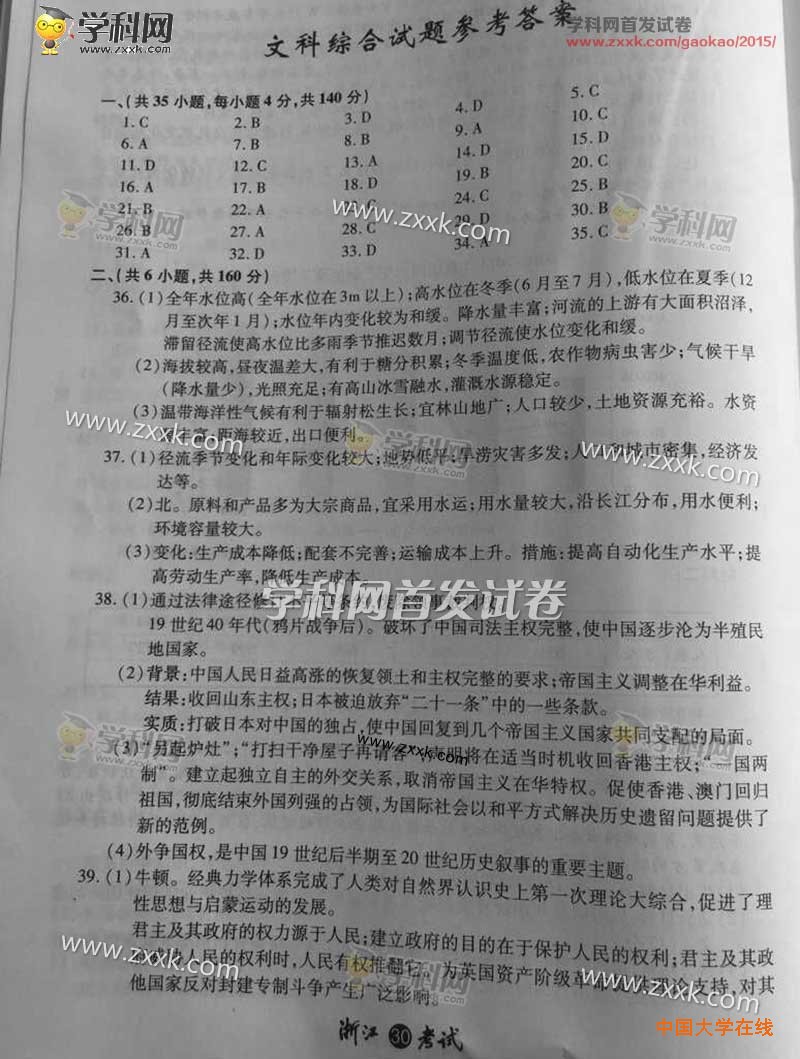 学科网
www.zxxk.com
学科网首发试卷
www.zxxk.com/gaokao/2015/
文科综合试题参考答案
一、(共35小题,每小题4分,共140分)
1. C 2. B 3. D 4. D 5. C
6. A 7. B 8. B 9. A 10. C
11. D 12. C 13. A 14. D 15. D
16. A 17. B 18. D 19. B 20. C
21. B 22. A C 24. C 25. B
26. B 27. A 28. C 29. D 30. B
31. A 32. D 33. D 34. A 35. C
二、(共6小题,共160分)
36. (1)全年水位高(全年水位在3m以上);高水位在冬季(6月至7月),低水位在夏季(12
月至次年1月);水位年内变化较为和缓。降水量丰富;河流的上游有大面积沼泽,
滞留径流使高水位比多雨季节推迟数月;调节径流使水位变化和缓。
(2)海拔较高,昼夜温差大,有利于糖分积累;冬季温度低,农作物病虫害少;气候干旱
(降水量少),光照充足;有高山冰雪融水,灌溉水源稳定。
(3)温带海洋性气候有利于辐射松生长;宜林山地广;人口较少,土地资源充裕。水资
丰富;距海较近,出口便利。
37. (1)径流季节变化和年际变化较大;地势低平;旱涝灾害多发;人口和城市密集,经济发
达等。
(2)北。原料和产品多为大宗商品,宜采用水运;用水量较大,沿长江分布,用水便利;
环境容量较大。
(3)变化:生产成本降低;配套不完善;运输成本上升。措施:提高自动化生产水平;提
高劳动生产率,降低生产成本。
38. (1)通过法律途径修
19世纪40年代(鸦片战争后)。破坏了中国司法主权完整,使中国逐步沦为半殖民
地国家。
(2)背景:中国人民日益高涨的恢复领土和主权完整的要求;帝国主义调整在华利益。
结果:收回山东主权;日本被迫放弃“二十一条”中的一些条款。
实质:打破日本对中国的独占,使中国回复到几个帝国主义国家共同支配的局面。
(3)“另起炉灶”;“打扫干净屋子再请客”;声明将在适当时机收回香港主权;“一国两
制”。建立起独立自主的外交关系,取消帝国主义在华特权。促使香港、澳门回归
祖国,彻底结束外国列强的占领,为国际社会以和平方式解决历史遗留问题提供了
新的范例。
(4)外争国权,是中国19世纪后半期至20世纪历史叙事的重要主题。
39. (1)牛顿。经典力学体系完成了人类对自然界认识史上第一次理论大综合,促进了理
性思想与启蒙运动的发展。
君主及其政府的权力源于人民;建立政府的目的在于保护人民的权利;君主及其政
人民的权利时,人民有权推翻它。为英国资产阶级革命 理论支持,对其
他国家反对封建专制斗争产生广泛影响。
浙江 30 考试
中国大学在线